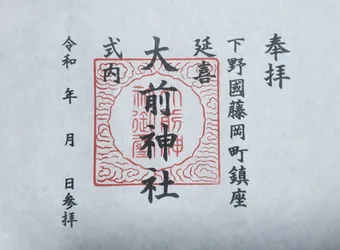 奉拝
下野國藤岡町鎮座
延喜
式内
大前神社
令和 年 月 日参拝